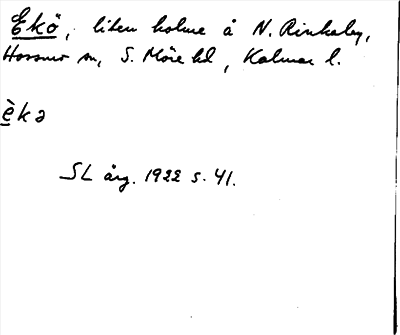 Ekö, liten holme å N. Rinkaby,
Hossmo sn, S. Möre hd, Kalmar l.
èkə
SL årg. 1922 s. 41.